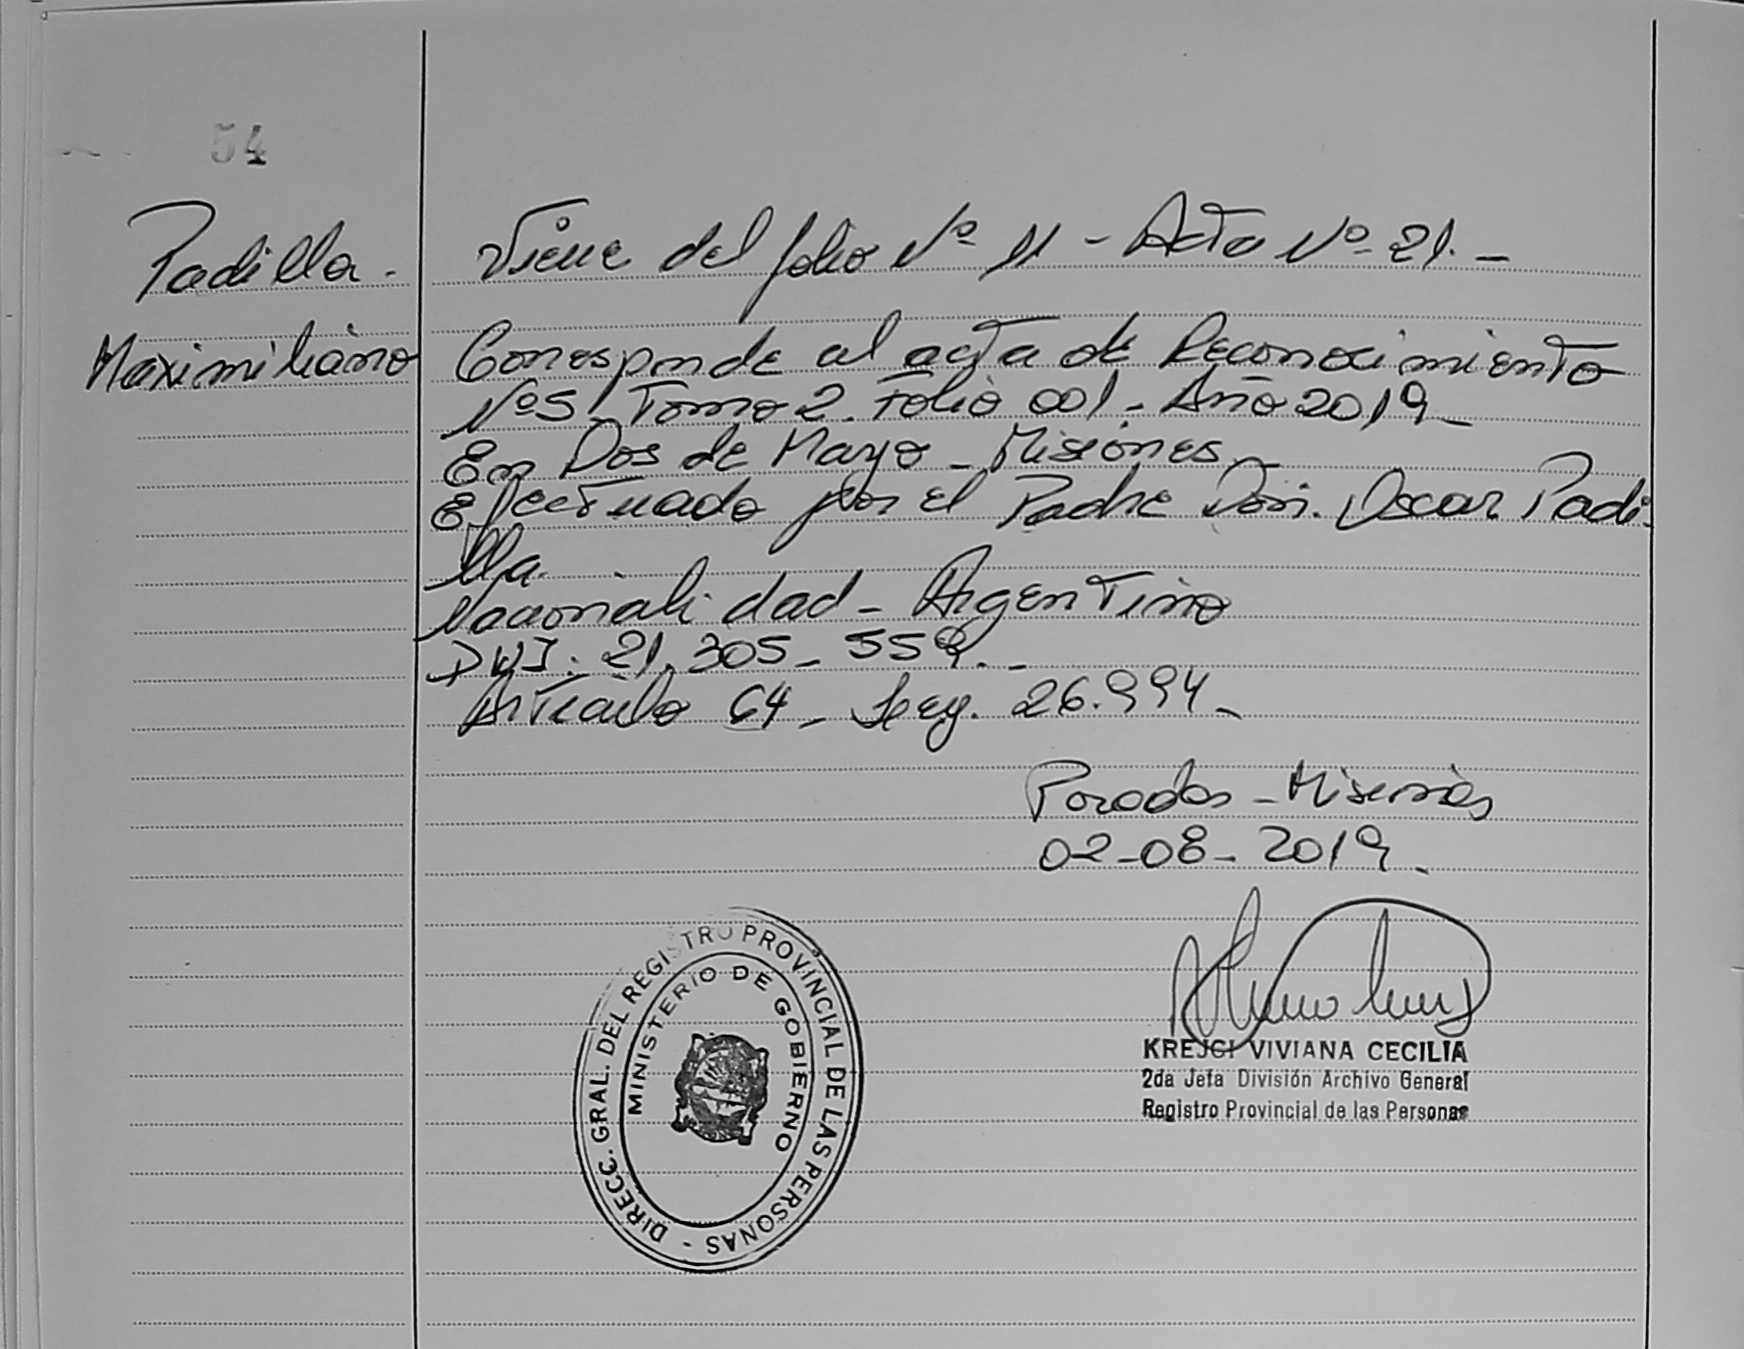 54
Padilla.
Maximiliano
Viene del folio Nº 11 - Acta Nº 21. -
Corresponde al acta de Reconocimiento
Nº 5 Tomo 2. Folio 001 - Año 2019 -
En Dos de Mayo - Misiones
Efectuado por el Padre Don. Oscar Padi-
lla.
Nacionalidad - Argentino
DNI. 21.305-559. -
Artículo 64 - Ley. 26.994 -
Posadas - Misiones
02-08-2019 -
DIRECC. GRAL. DEL REGISTRO PROVINCIAL DE LAS PERSONAS -
MINISTERIO DE GOBIERNO
KREJCI VIVIANA CECILIA
2da Jefa División Archivo General
Registro Provincial de las Personas